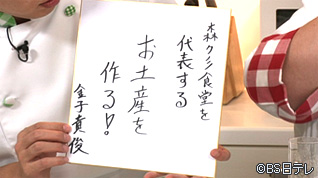 森クミ食堂を
代表する
お土産を
作る!!
金子貴俊
©BS日テレ